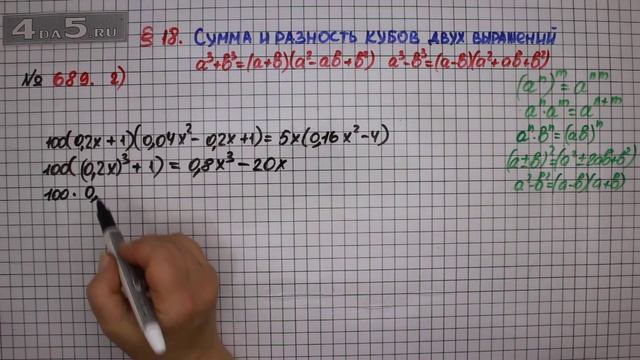 4DA5.RU
§ 18. Сумма и разность кубов двух выражений
a³+b³=(a+b)(a²-ab+b²) a³-b³=(a-b)(a²+ab+b²)
№ 689. 2)
(aⁿ)ᵐ=aⁿᵐ
aⁿ·aᵐ=aⁿ⁺ᵐ
aⁿ·bⁿ=(ab)ⁿ
(a±b)²=(a²±2ab+b²)
a²-b²=(a-b)(a+b)
100(0,2x+1)(0,04x²-0,2x+1)=5x(0,16x²-4)
100((0,2x)³+1)=0,8x³-20x
100·0,